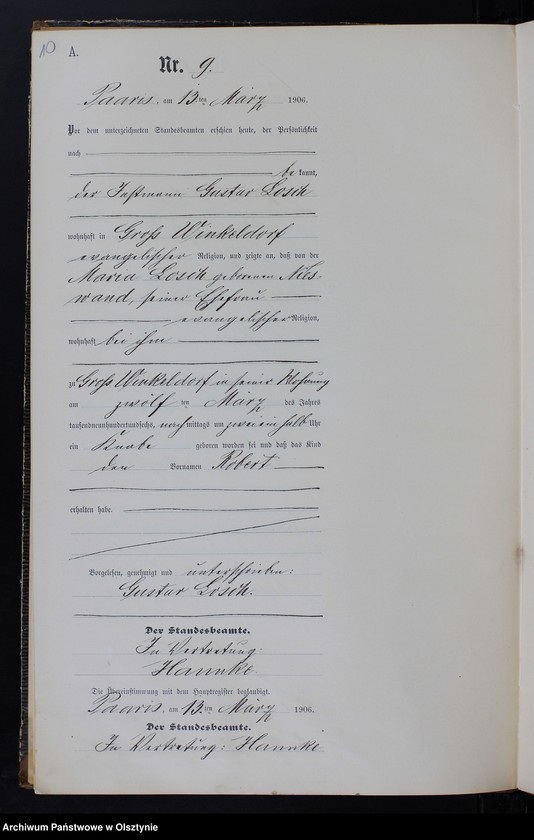 10
A.
Nr. 9.
Paaris, am 13ten März 1906.
Vor dem unterzeichneten Standesbeamten erschien heute, der Persönlichkeit
nach
bekannt,
der Instmann Gustav Losch
wohnhaft in Groß Winkeldorf
evangelischer Religion, und zeigte an, daß von der
Maria Losch geborenen Nils-
wand, seiner Ehefrau
evangelischer Religion,
wohnhaft bei ihm
zu Groß Winkeldorf in seiner Wohnung
am zwölften März des Jahres
tausendneunhundertundsechs, nachmittags um zweieinhalb Uhr
ein Knabe geboren worden sei und daß das Kind
den Vornamen Robert
erhalten habe.
Vorgelesen, genehmigt und unterschrieben:
Gustav Losch.
Der Standesbeamte.
In Vertretung
Hannke
Die Übereinstimmung mit dem Hauptregister beglaubigt.
Paaris, am 13.ten März 1906.
Der Standesbeamte.
In Vertretung: Hannke
Archiwum Państwowe w Olsztynie